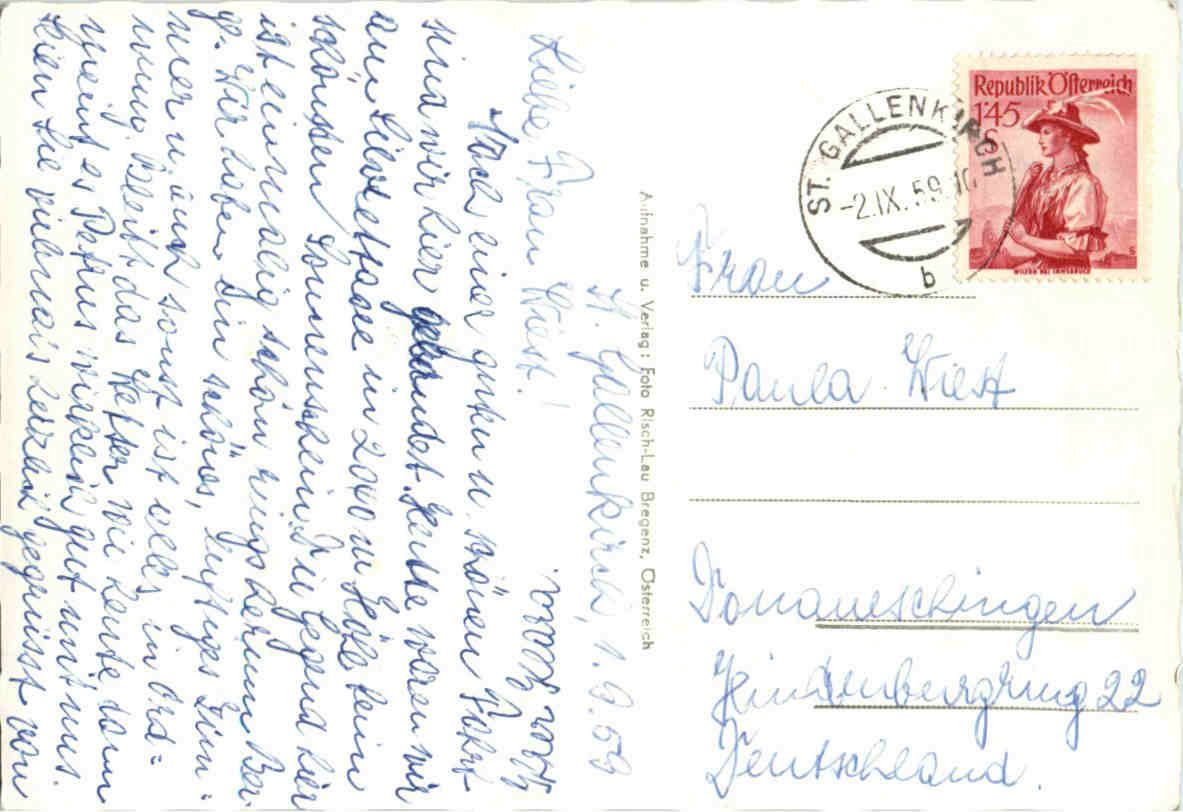 St. Gallenkirch, 1.9.59
Liebe Frau Wiest!
Nach einer guten u. schönen Fahrt
sind wir hier gelandet. Heute waren wir
am Silvrettasee in 2040 m Höhe beim
schönsten Sonnenschein. Die Gegend hier
ist einmalig schön rings herum Ber
ge. Wir haben ein schönes, luftiges Zim-
mer u. auch sonst ist alles in Ord=
nung. Bleibt das Wetter wie heute dann
meint es Petrus wirklich gut mit uns.
Seien Sie vielmals herzlich gegrüsst von
Aufnahme u. Verlag: Foto Risch-Lau Bregenz, Österreich
ST. GALLENKIRCH
-2.IX.59.10
b
Republik Österreich
1'45
S
WILTEN BEI INNSBRUCK
Frau
Paula Wiest
Donaueschingen
Hindenburgring 22
Deutschland.